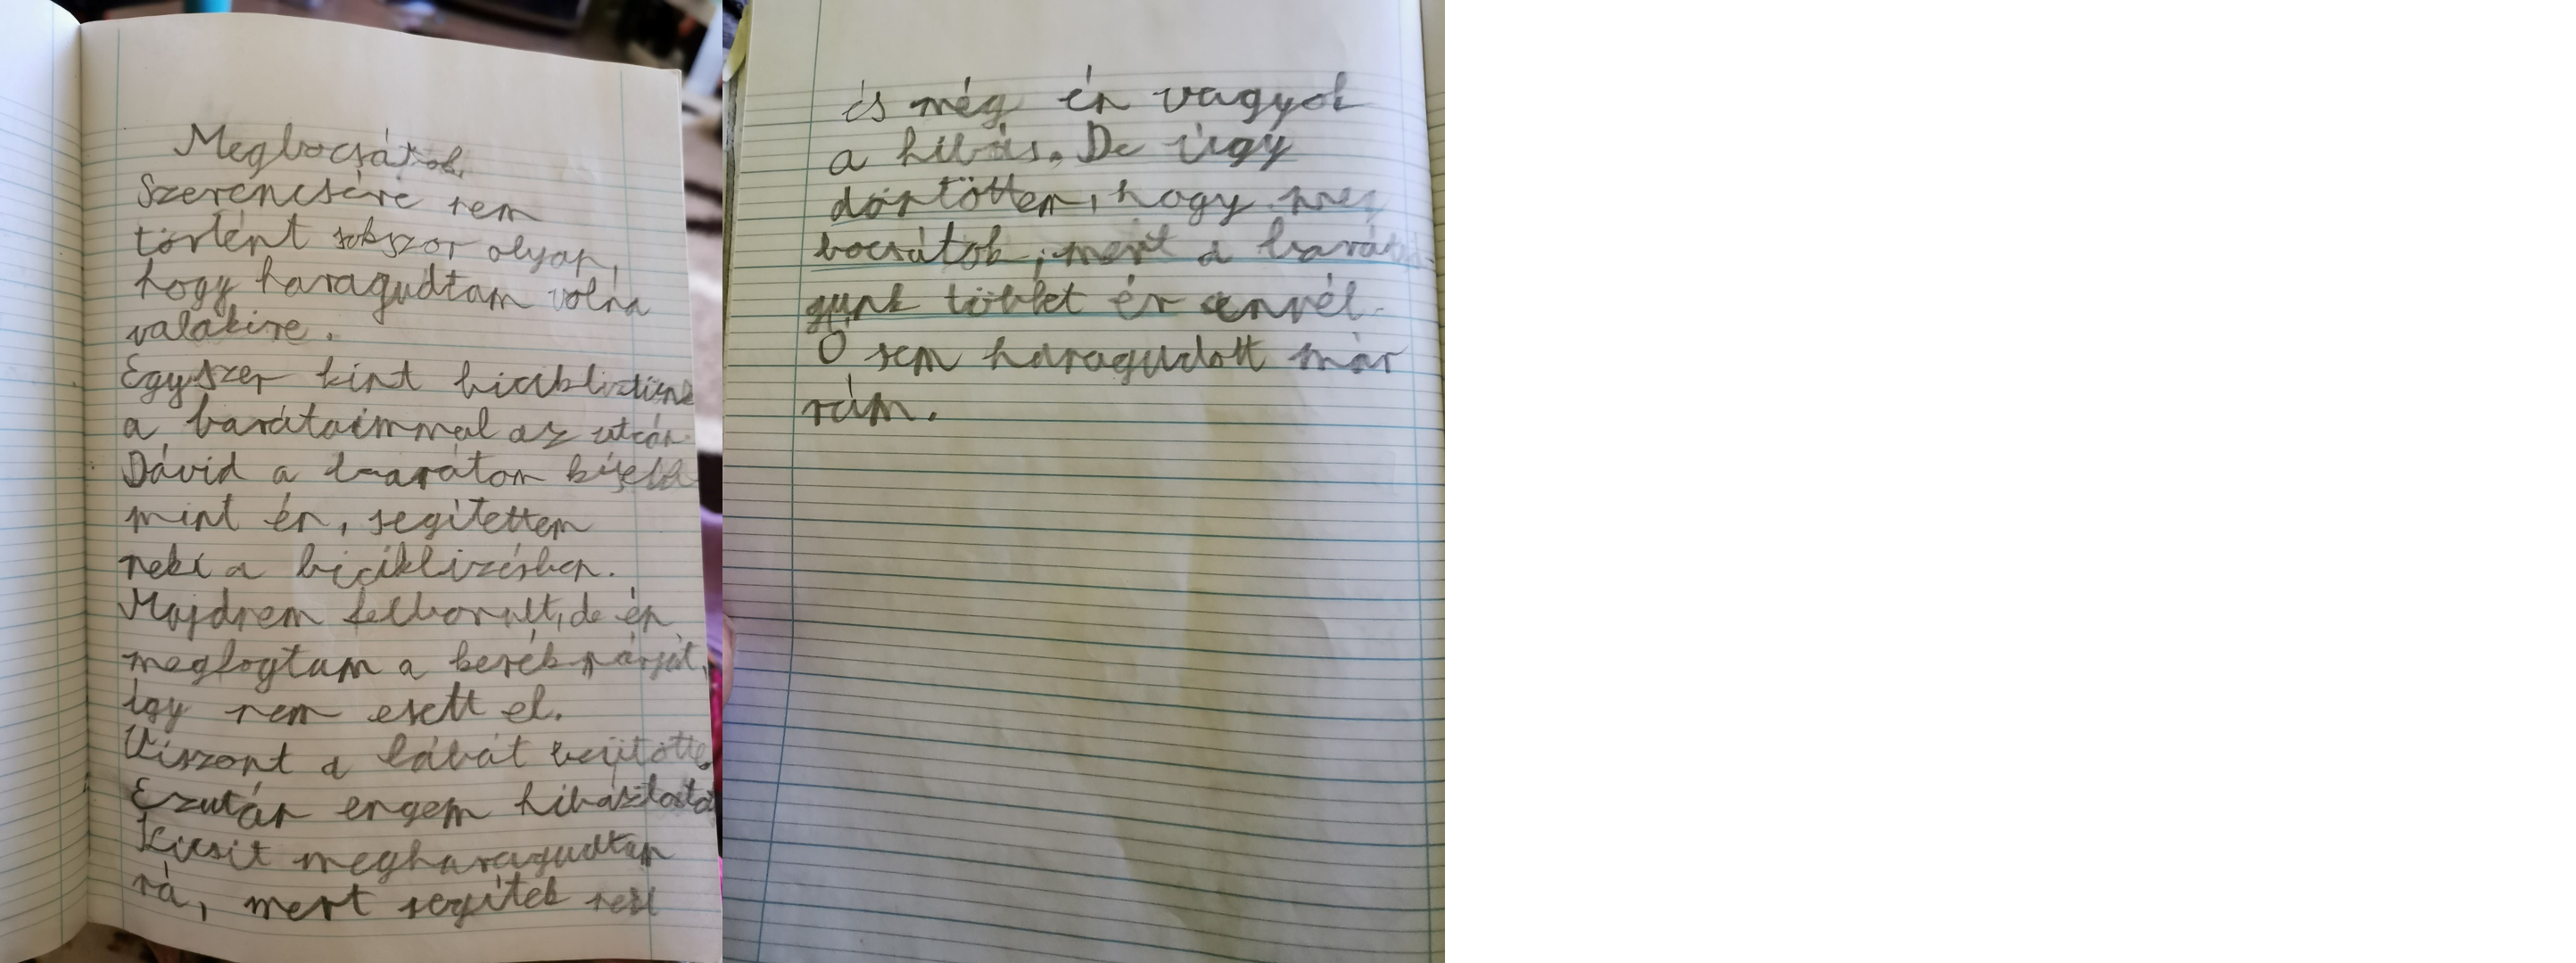 Megbocsátok
Szerencsére nem
történt sokszor olyan,
hogy haragudtam volna
valakire.
Egyszer kint bicikliztünk
a barátaimmal az utcán.
Dávid a barátom kisebb
mint én, segítettem
neki a biciklizésben.
Majdnem felborult, de én
megfogtam a kerékpárját,
így nem esett el.
Viszont a lábát beütötte.
Ezután engem hibáztatott
Kicsit megharagudtam
rá, mert segítek neki
és még én vagyok
a hibás. De úgy
döntöttem, hogy meg
bocsátok, mert a barátsá-
gunk többet ér ennél.
Ő sem haragudott már
rám.